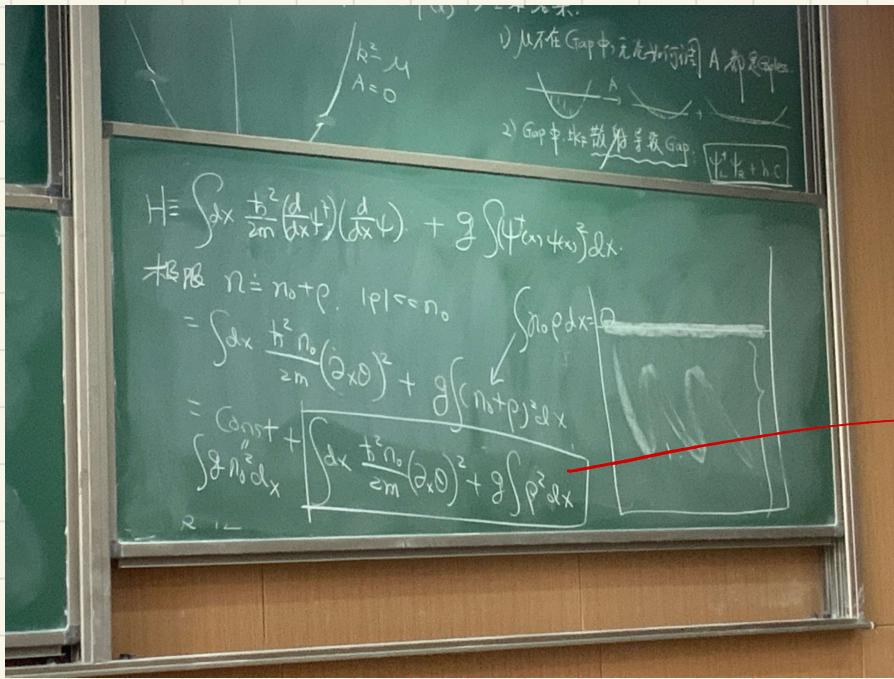 k²=μ
A=0
1) μ不在Gap中, 无论如何调 A 都是Gapless.
A
+
2) Gap中, 散射导致Gap: ψ_L^† ψ_R + h.c
H≡ ∫dx ħ²/2m (d/dx ψ^†)(d/dx ψ) + g∫(ψ^†(x) ψ(x))² dx.
极限 n ≐ n₀+ρ. |ρ|<<n₀
∫n₀ρdx=0
= ∫dx ħ²n₀/2m (∂ₓθ)² + g∫(n₀+ρ)²dx
= Const + ∫dx ħ²n₀/2m (∂ₓθ)² + g∫ρ²dx
∫g n₀² dx